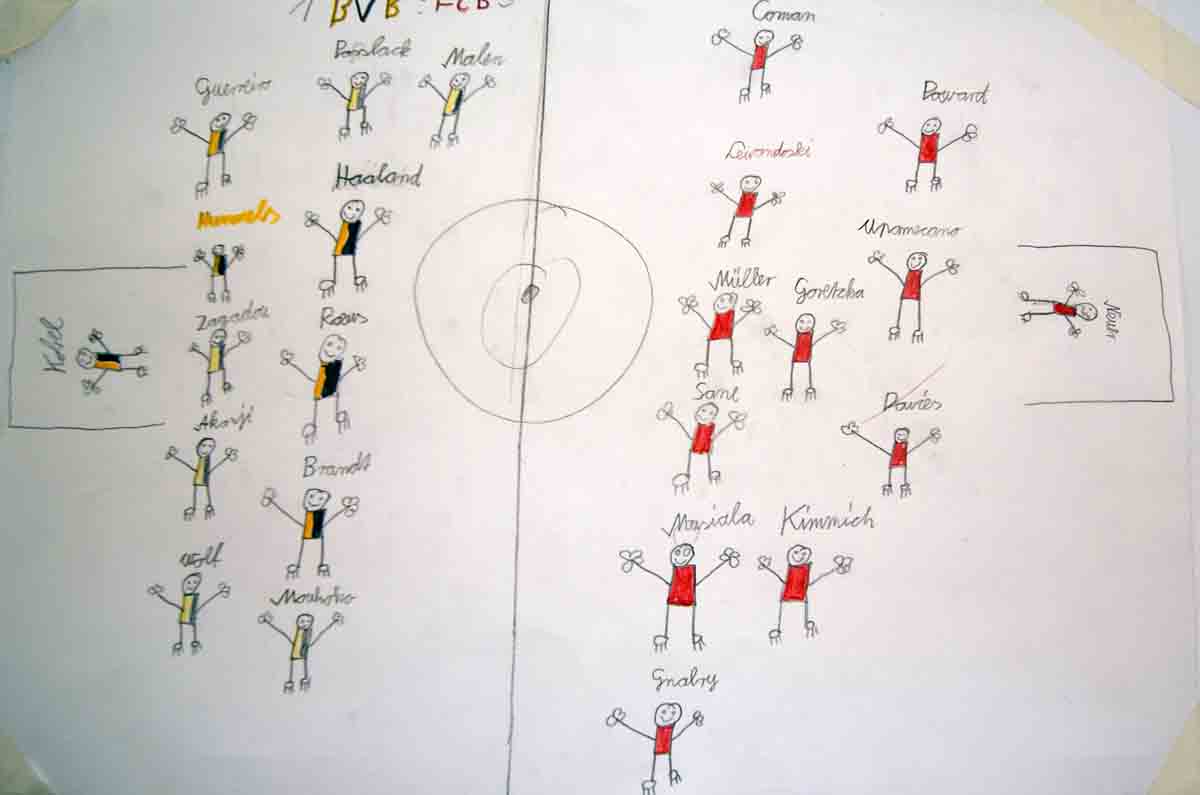 1 BVB : FCB 3
Coman
Malen
Guerreiro
Pasvard
Lewondoski
Haaland
Hummels
Upamecano
Müller
Goretzka
Zagadou
Reus
Neuer
Kobel
Sane
Davies
Akanji
Brandt
Musiala
Kimmich
Wolf
Moukoko
Gnabry